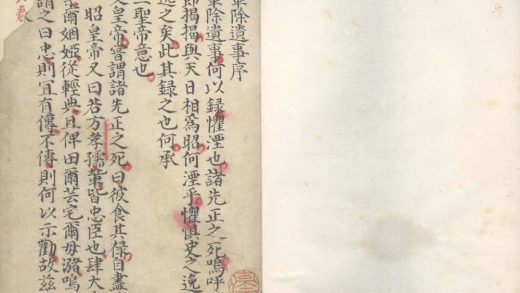 革除遺事序
革除遺事何以錄懼湮也諸先正之死嗚呼
節揭揭與天日相為昭何湮乎懼惧史之逸
逸之矣此其錄之也何承
二聖帝意也
文皇帝嘗謂諸先正之死曰彼食其祿自盡
昭皇帝又曰若方孝孺輩皆忠臣也肆大
爾姻婭從輕典且俾田爾芸宅爾毋瀦嗚
謂之曰忠則宜有傳不傳則何以示勸故茲